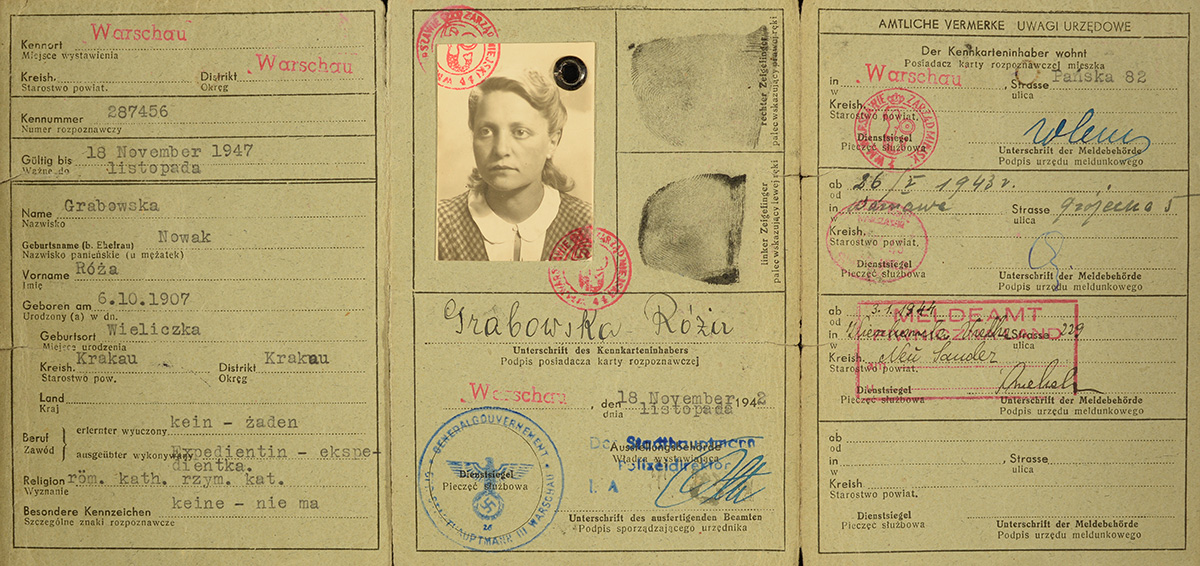 Warschau
Kennort
Miejsce wystawienia
Warschau
Kreish. Distrikt
Starostwo powiat. Okręg
287456
Kennummer
Numer rozpoznawczy
18 November 1947
Gültig bis
Ważne do listopada
Grabowska
Name
Nazwisko
Nowak
Geburtsname (b. Ehefrau)
Nazwisko panieńskie (u mężatek)
Róża
Vorname
Imię
6.10.1907
Geboren am
Urodzony (a) w dn.
Wieliczka
Geburtsort
Miejsce urodzenia
Krakau Krakau
Kreish. Distrikt
Starostwo pow. Okręg
Land
Kraj
kein - żaden
Beruf erlernter wyuczony
Zawód
Expedientin - ekspe-
ausgeübter wykonywany
dientka.
röm. kath. rzym. kat.
Religion
Wyznanie
keine - nie ma
Besondere Kennzeichen
Szczególne znaki rozpoznawcze
rechter Zeigefinger
palec wskazujący prawej ręki
linker Zeigefinger
palec wskazujący lewej ręki
Grabowska Róża
Unterschrift des Kennkarteninhabers
Podpis posiadacza karty rozpoznawczej
Warschau, den 18 November 1942
dnia listopada
Der Stadthauptmann
Ausstellungsbehörde
Władza wystawiająca
Polizeidirektor
I. A
GENERALGOUVERNEMENT
STADTHAUPTMANN IN WARSCHAU
Dienstsiegel
Pieczęć służbowa
Unterschrift des ausfertigenden Beamten
Podpis sporządzającego urzędnika
AMTLICHE VERMERKE UWAGI URZĘDOWE
Der Kennkarteninhaber wohnt
Posiadacz karty rozpoznawczej mieszka
in Warschau, Strasse Pańska 82
w ulica
Kreish.
Starostwo powiat.
Dienstsiegel
Pieczęć służbowa
Unterschrift der Meldebehörde
Podpis urzędu meldunkowego
ab 26/V 1943 r.
od
in Warszawa Strasse Grójecka 5
w ulica
Kreish.
Starostwo powiat.
Dienstsiegel
Pieczęć służbowa
Unterschrift der Meldebehörde
Podpis urzędu meldunkowego
ab 3.1.1944
od
MELDEAMT
in Strasse 229
w ulica
Kreish. Neu Sandez
Starostwo powiat.
Dienstsiegel
Pieczęć służbowa
Unterschrift der Meldebehörde
Podpis urzędu meldunkowego
ab
od
in, Strasse
w ulica
Kreish.
Starostwo powiat.
Dienstsiegel
Pieczęć służbowa
Unterschrift der Meldebehörde
Podpis urzędu meldunkowego